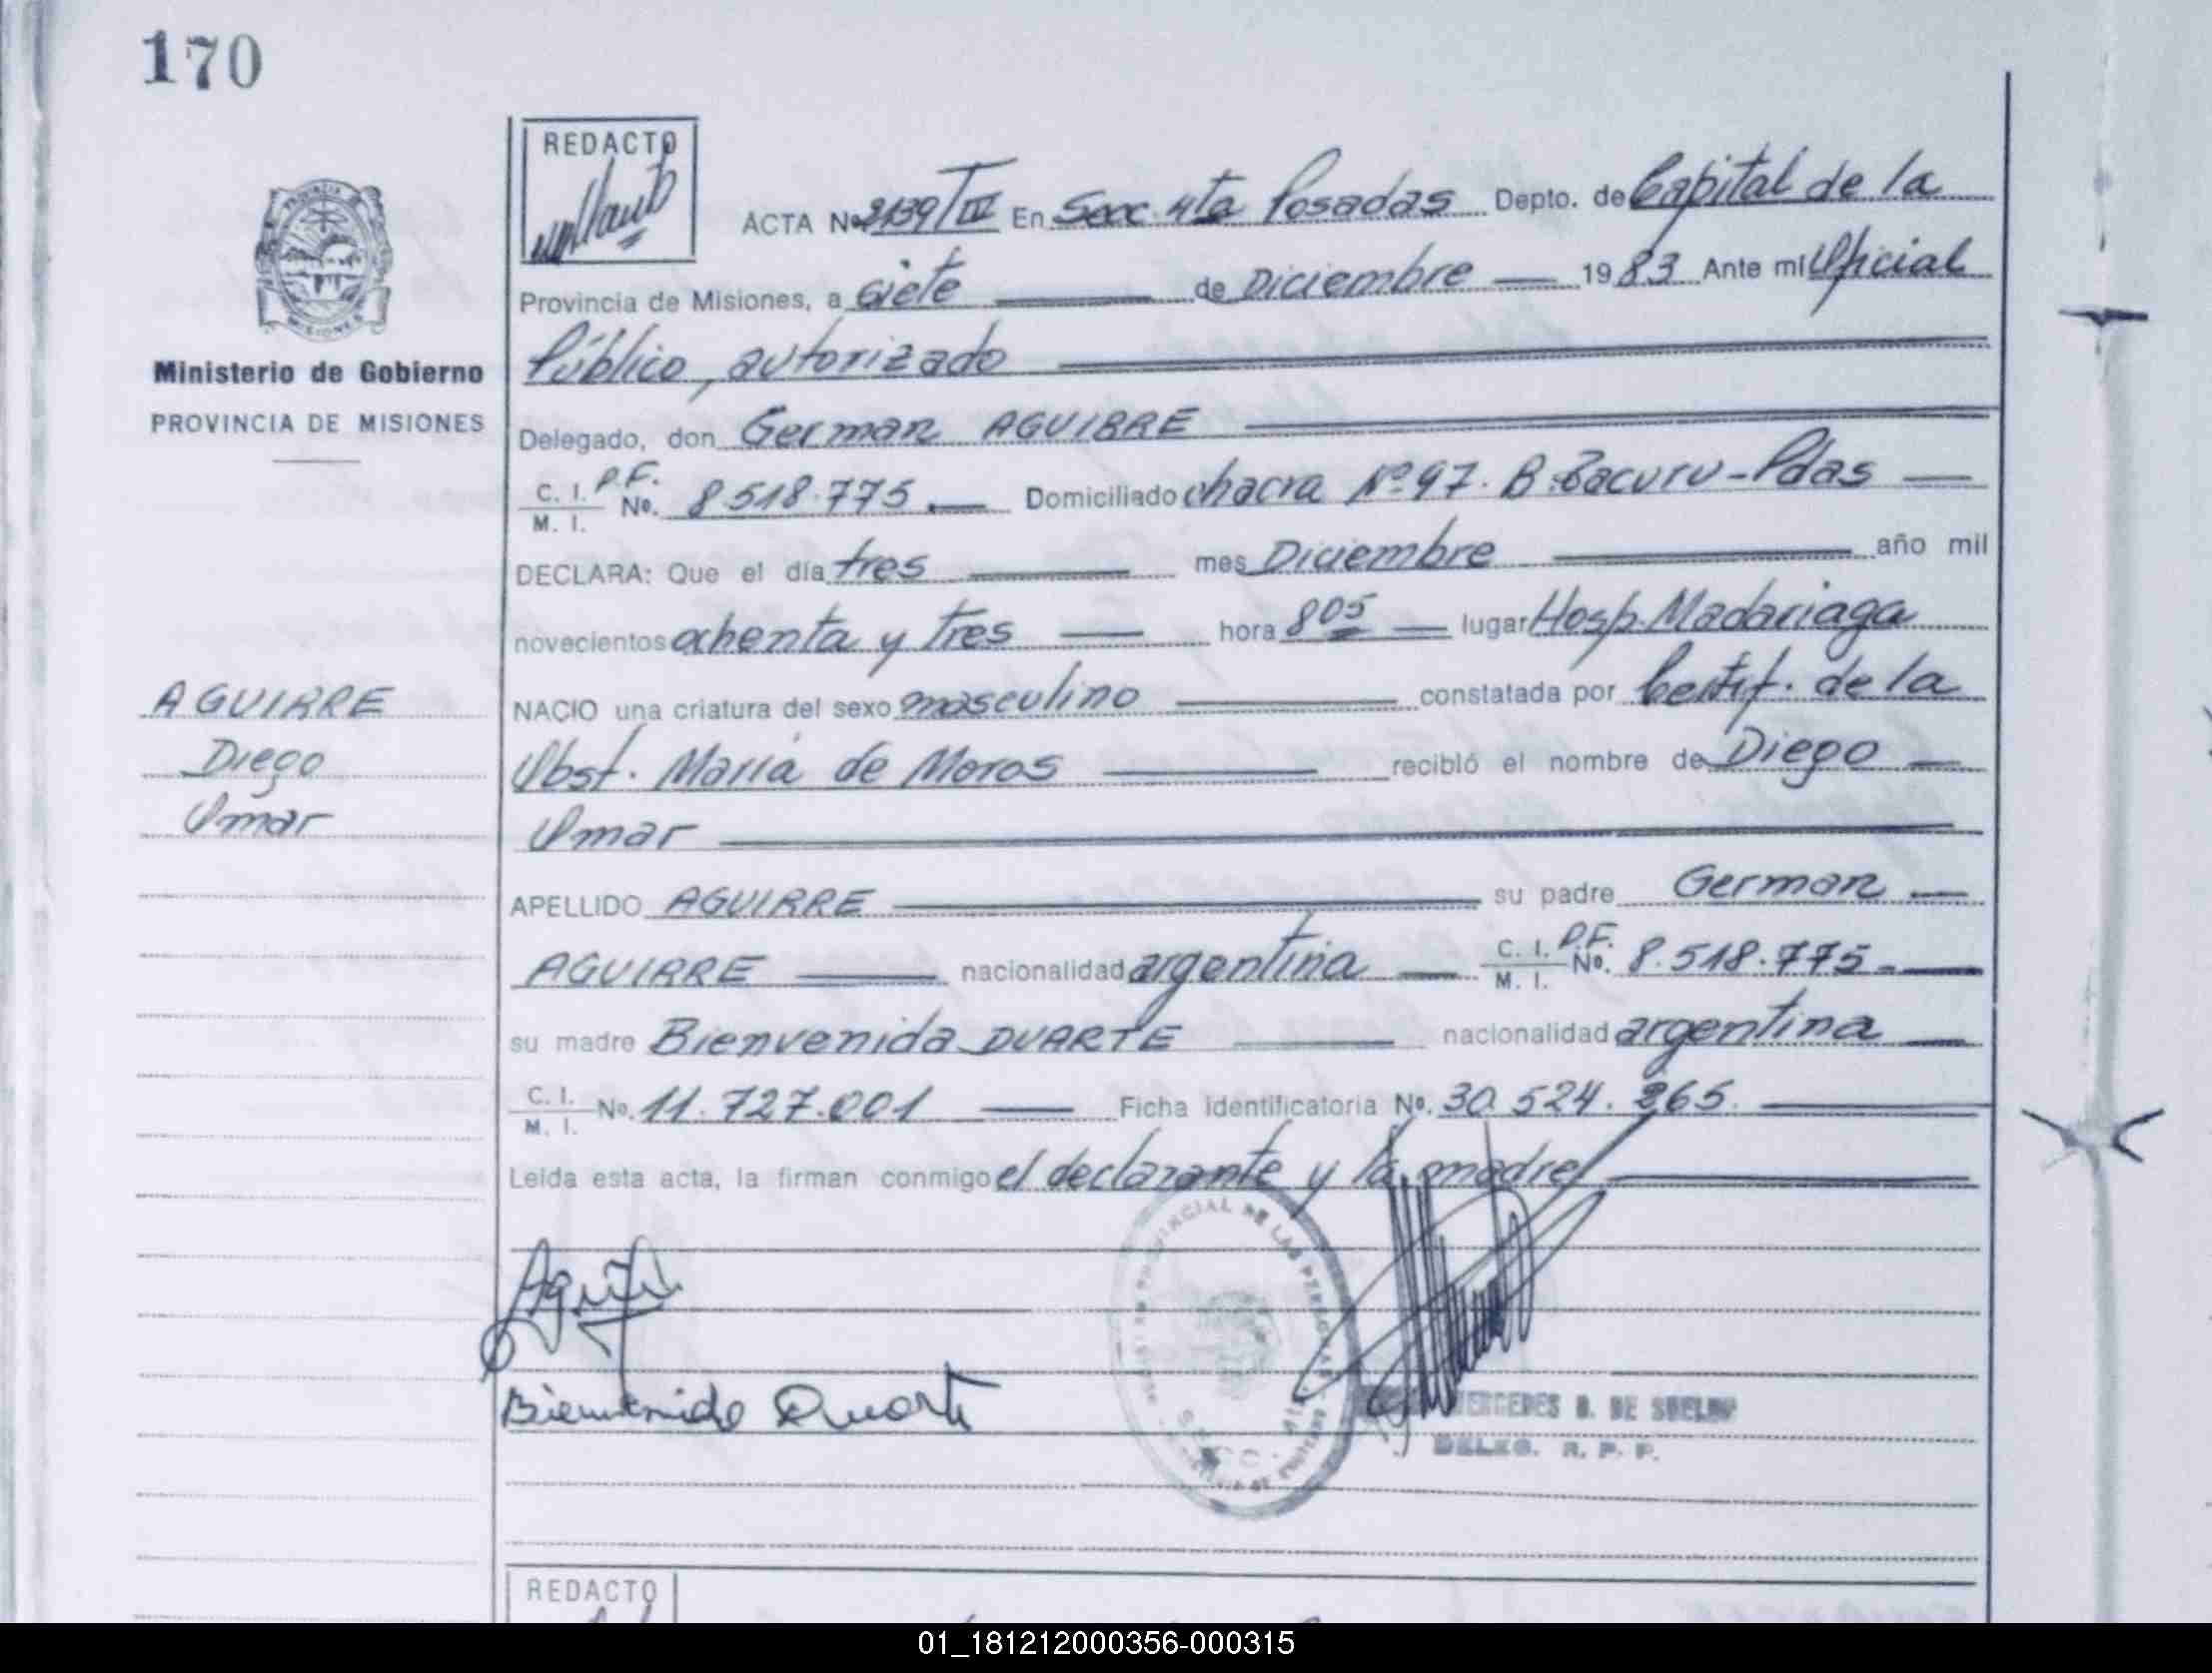 170
REDACTO
ACTA Nº 2139/III En Secc. 4ta Posadas Depto. de Capital de la
Provincia de Misiones, a siete de Diciembre 1983 Ante mi Oficial
Público, autorizado
PROVINCIA
MISIONES
Ministerio de Gobierno
PROVINCIA DE MISIONES
Delegado, don German AGUIRRE
C. I. P.F.
M. I. Nº. 8.518.775 Domiciliado chacra Nº 97. B. Bacuru-Pdas
DECLARA: Que el día tres mes Diciembre año mil
novecientos ochenta y tres hora 805 lugar Hosp. Madariaga
NACIO una criatura del sexo masculino constatada por Certif. de la
Obst. Maria de Moros recibió el nombre de Diego
Omar
AGUIRRE
Diego
Omar
APELLIDO AGUIRRE su padre German
AGUIRRE nacionalidad argentina C. I. P.F.
M. I. Nº. 8.518.775
su madre Bienvenida DUARTE nacionalidad argentina
C. I.
M. I. Nº. 11.727.001 Ficha identificatoria Nº. 30.524.265.
Leída esta acta, la firman conmigo el declarante y la madre
Bienvenida Duarte
PROVINCIAL DE LAS PERSONAS
SECC. 4ta
MERCEDES B. DE
DELEG. R. P. P.
REDACTO
01_181212000356-000315